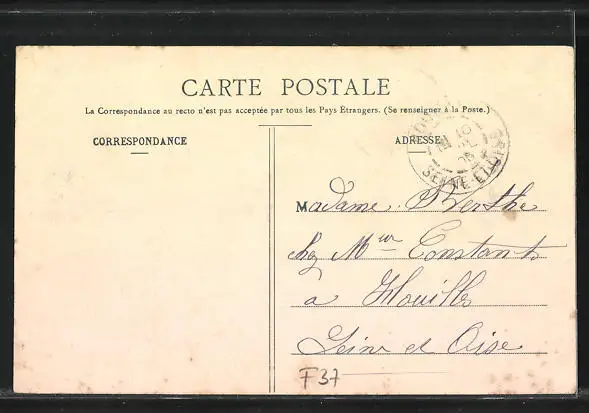 CARTE POSTALE
La Correspondance au recto n'est pas acceptée par tous les Pays Etrangers. (Se renseigner à la Poste.)
CORRESPONDANCE
ADRESSE
SEINE-ET-OISE
Madame Berthe
chez Mur Constant
a Houilles
Seine et Oise
F37